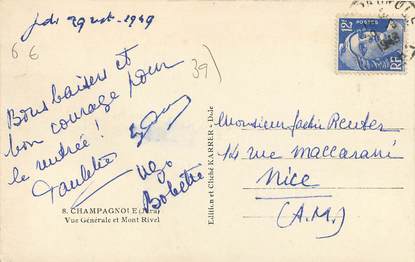 1949
6 6
39
Bons baisers et
bon courage pour
la rentrée !
Paulette
Bobette
Monsieur Jackie Reuter
14 rue Maccarani
Nice
(A.M.)
8. CHAMPAGNOLE (Jura)
Vue Générale et Mont Rivel
Edition et Cliché KARRER - Dole
POSTES
12F
RF